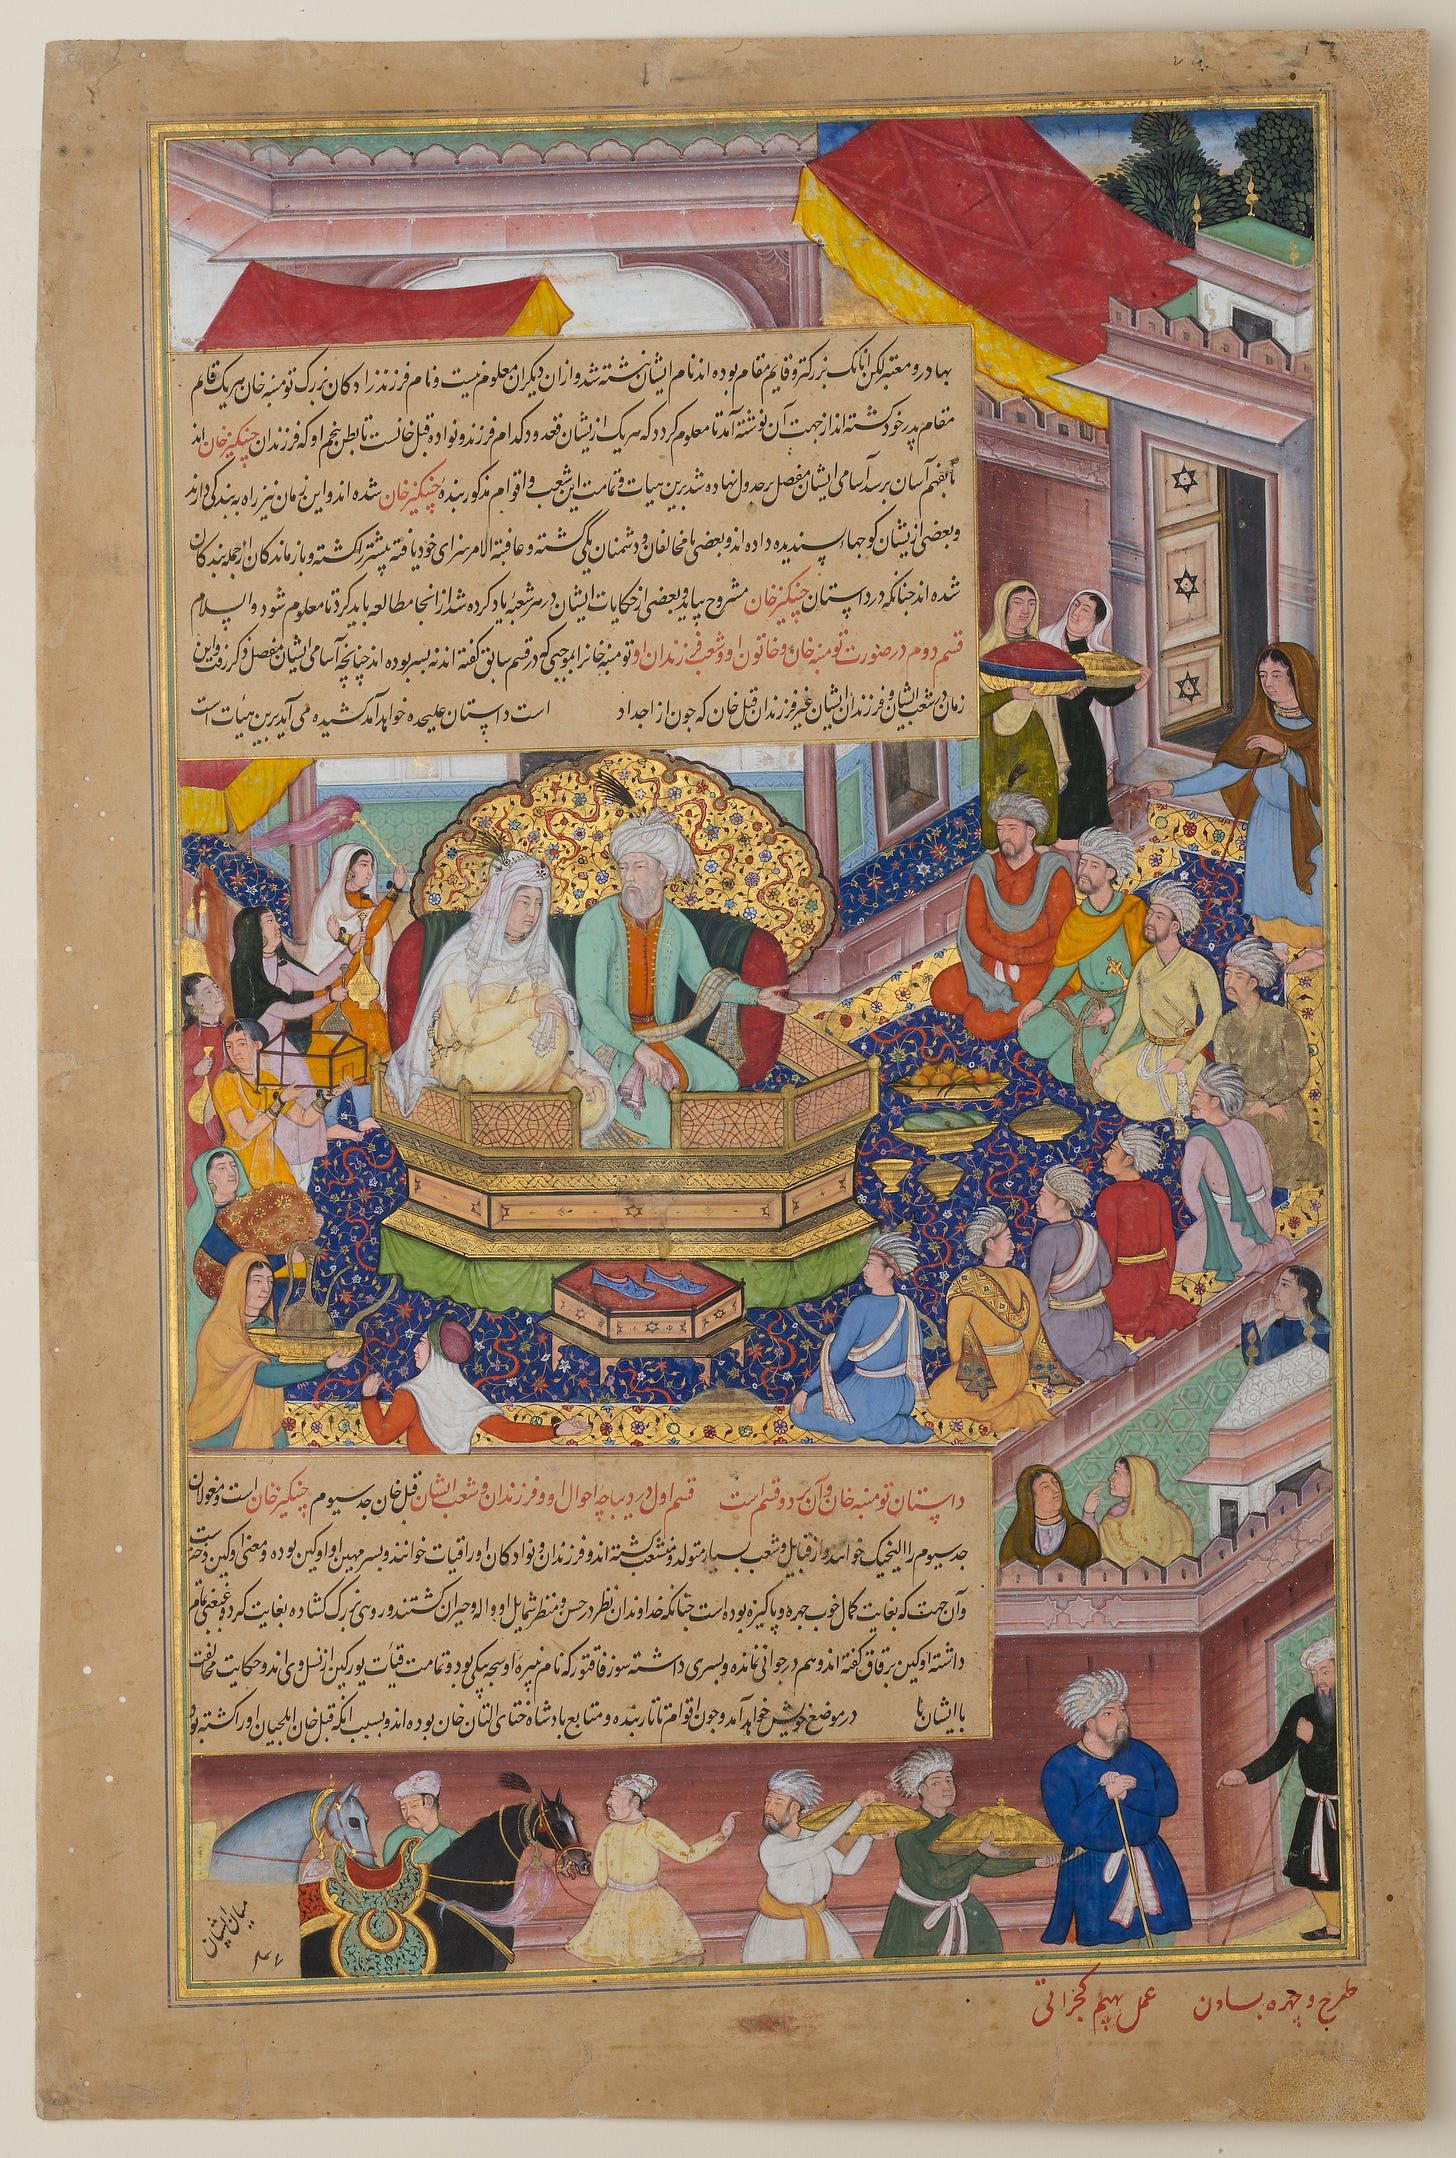 بهادر و معتبر لكن آنانك بزركتر و قايم مقام بوده اند نام ايشان نبشته شد و از ان ديكران معلوم نيست و نام فرزندزادكان بزرك تومنه خان هر يك قايم
مقام پدر خود كشته اند از جهت آن نوشته آمد تا معلوم كردد كه هر يك از يشان قعدود كدام فرزند و نواده قبل خانست تا بطن پنجم او كه فرزندان چنكيز خان اند
تا بفهم آسان برسد آسامى ايشان مفصل بر جدول نهاده شد برين هيات و تمامت اين شعب و اقوام مذكور بنده چنكيز خان شده اند و اين زمان نيز راه بندكى دارند
و بعضى از يشان كوجهاء پسنديده داده اند و بعضى با مخالفان و دشمنان يكى كشته و عاقبة الامر سزاى خود يافته بيشتر را كشته و بازماندكان از جمله بندكان
شده اند جنانكه در داستان چنكيز خان مشروح بيايد و بعضى از حكايات ايشان در هر شعبه ياد كرده شد از انجا مطالعه بايد كرد تا معلوم شود والسلام
قسم دوم در صورت تومنه خان و خاتون او و شعب فرزندان او تومنه خانرا بموجبى كه در قسم سابق كفته اند نه پسر بوده اند چنانچه آسامى ايشان مفصل ذكر رفت و اين
زمان در شعب ايشان و فرزندان ايشان غير فرزندان قبل خان كه جون از اجداد است داستان عليحده خواهد آمد كشيده مى آيد برين هيات است
داستان تومنه خان و آن بر دو قسم است قسم اول در ديباجه احوال او و فرزندان و شعب ايشان قبل خان جد سيوم چنكيز خان است و مغولان
جد سيوم را اليخيك خوانند و از قبايل و شعب بسيار متولد و منشعب كشته اند و فرزندان و نوادكان او را قيات خوانند و پسر مهين او اوكين بوده و معنى اوكين دخترست
و آن جهت كه بغايت كمال خوب جهره و پاكيزه بوده است جنانكه خداوندان نظر در حسن و منظر شمايل او واله و حيران كشتند و روى بزرك كشاده بغايت كرد و غبغبى تمام
داشته اوكين برقاق كفته اند و هم در جوانى نمانده و پسرى داشته سورقاقتو كه نام نبيره او سجه بيكى بود و تمامت قيات يوركين از نسل وى اند و حكايت مخالفت
با ايشان تا در موضع خويش خواهد آمد و جون اقوام تاتار بنده و متابع بادشاه ختاى التان خان بوده اند و بسبب آنكه قبل خان ايلجيان او را كشته بود
ميان ايشان
طرح و چهره بساون عمل بهيم كجراتى